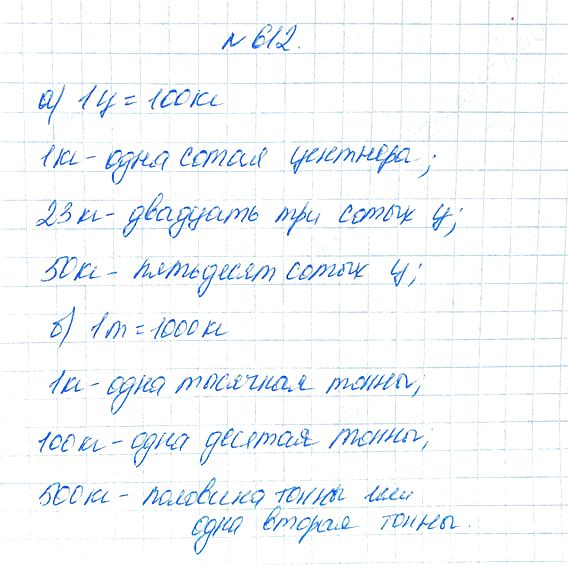 № 612.
а) 1ц = 100кг
1кг - одна сотая центнера;
23кг - двадцать три сотых ц;
50кг - пятьдесят сотых ц;
б) 1т = 1000кг
1кг - одна тысячная тонны;
100кг - одна десятая тонны;
500кг - половина тонны или
одна вторая тонны.